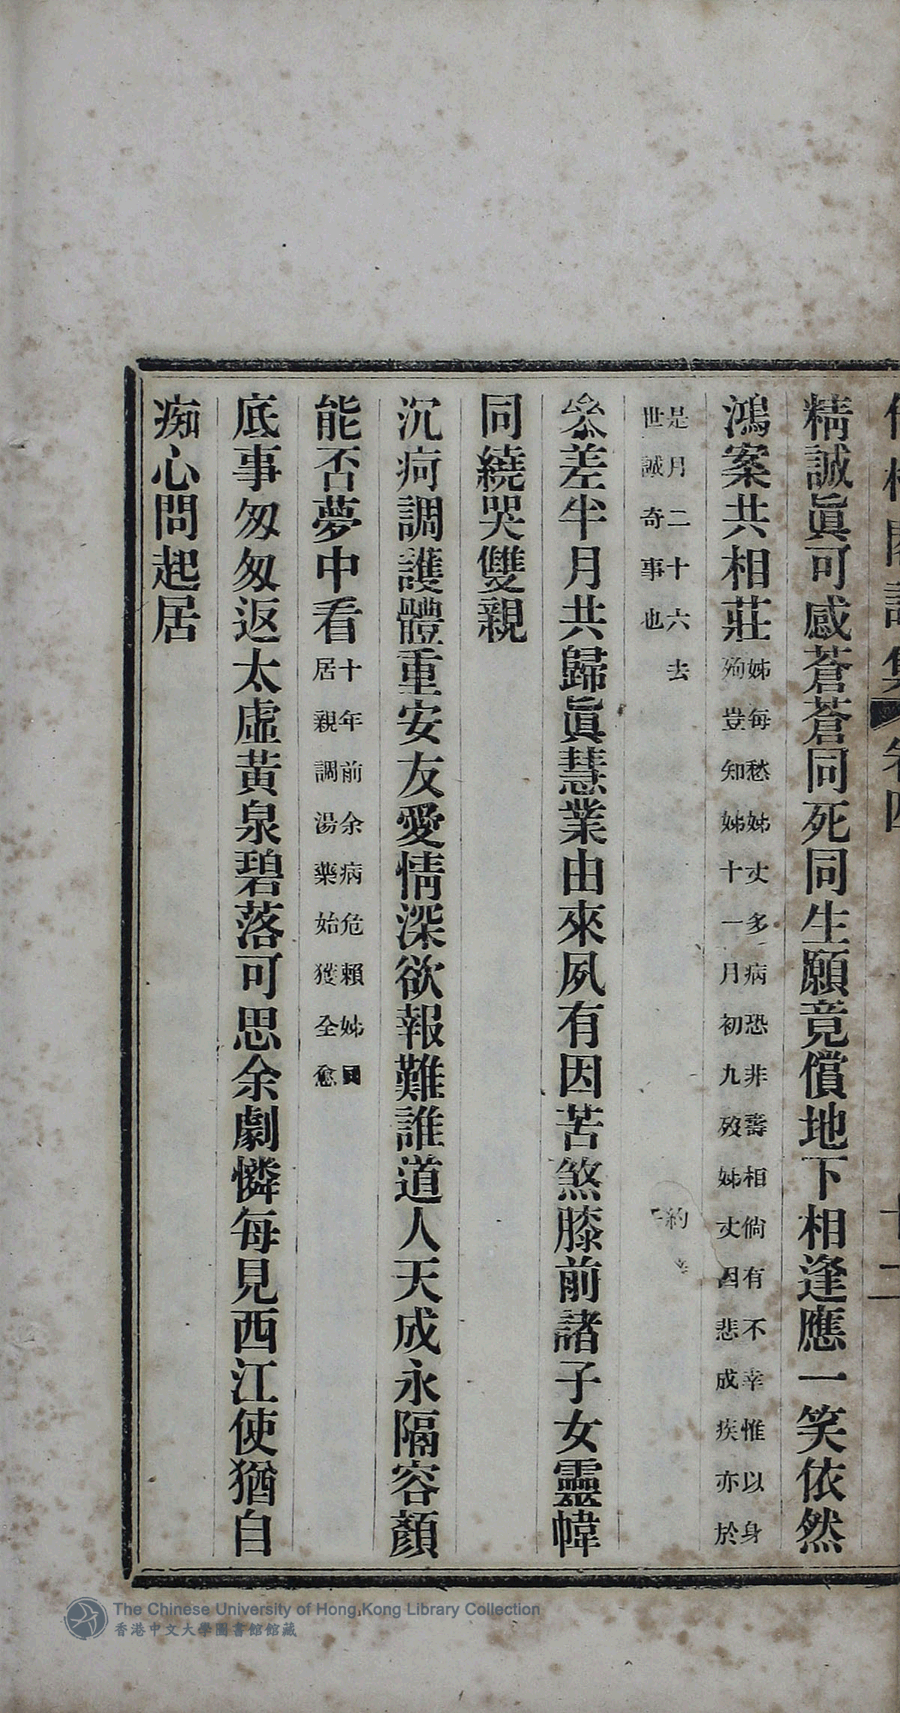 卷四
精誠眞可感蒼蒼同死同生願竟償地下相逢應一笑依然
鴻案共相莊姊每愁姊丈多病恐非壽相倘有不幸惟以身
殉豈知姊十一月初九歿姊丈因悲成疾亦於
是月二十六去
世誠奇事也
參差半月共歸眞慧業由來夙有因苦煞膝前諸子女靈幃
同繞哭雙親
沉疴調護體重安友愛情深欲報難誰道人天成永隔容顏
能否夢中看十年前余病危賴姊
居親調湯藥始獲全愈
底事匆匆返太虛黃泉碧落可思余劇憐每見西江使猶自
痴心問起居
The Chinese University of Hong Kong Library Collection
香港中文大學圖書館館藏